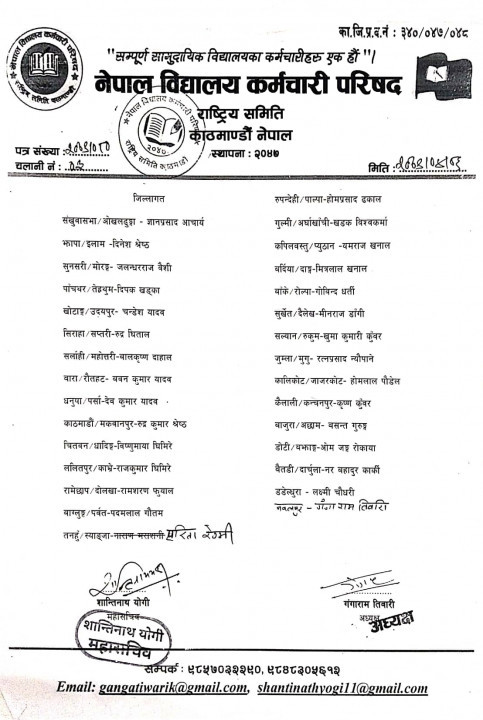 का.जि.प्र.द.नं : ३४०/०४७/०४८
"सम्पूर्ण सामुदायिक विद्यालयका कर्मचारीहरु एक हौं"।
नेपाल विद्यालय कर्मचारी परिषद
राष्ट्रिय समिति
काठमाण्डौं नेपाल
स्थापना : २०४७
पत्र संख्या :
चलानी नं :
मिति :
जिल्लागत
संखुवासभा/ओखलढुङ्गा - ज्ञानप्रसाद आचार्य
झापा/इलाम -दिनेश श्रेष्ठ
सुनसरी/मोरङ्ग- जलन्धरराज वैशी
पांचथर/तेह्रथुम-दिपक खड्का
खोटाङ्ग/उदयपुर- चन्देश यादव
सिराहा/सप्तरी-रुद्र घिताल
सर्लाही/महोत्तरी-बालकृष्ण दाहाल
बारा/रौतहट- बबन कुमार यादव
धनुषा/पर्सा-देव कुमार यादव
काठमाडौं/मकवानपुर-रुद्र कुमार श्रेष्ठ
चितवन/धादिङ्ग-विष्णुमाया घिमिरे
ललितपुर/काभ्रे-राजकुमार घिमिरे
रामेछाप/दोलखा-रामशरण फुयाल
बाग्लुङ्ग/पर्वत-पदमलाल गौतम
तनहुँ/स्याङ्जा-
रुपन्देही/पाल्पा-होमप्रसाद ढकाल
गुल्मी/अर्घाखाँची-खडक विश्वकर्मा
कपिलवस्तु/प्युठान -यमराज खनाल
बर्दिया/दाङ्ग-मित्रलाल खनाल
बांके/रोल्पा-गोबिन्द घर्ती
सुर्खेत/दैलेख-मीनराज डाँगी
सल्यान/रुकुम-खुमा कुमारी कुँवर
जुम्ला/मुगु- रत्नप्रसाद न्यौपाने
कालिकोट/जाजरकोट- होमलाल पौडेल
कैलाली/कन्चनपुर-कृष्ण कुँवर
बाजुरा/अछाम- बसन्त गुरुङ्ग
डोटी/बझाङ्ग-ओम जङ्ग रोकाया
बैतडी/दार्चुला-नर बहादुर कार्की
डडेल्धुरा - लक्ष्मी चौधरी
नवलपुर - गंगा राम तिवारी
शान्तिनाथ योगी
महासचिव
शान्तिनाथ योगी
महासचिव
गंगाराम तिवारी
अध्यक्ष
अध्यक्ष
सम्पर्क : ९८५७०३२२९०, ९८४८३०५६१२
Email: gangatiwarik@gmail.com, shantinathyogi11@gmail.com